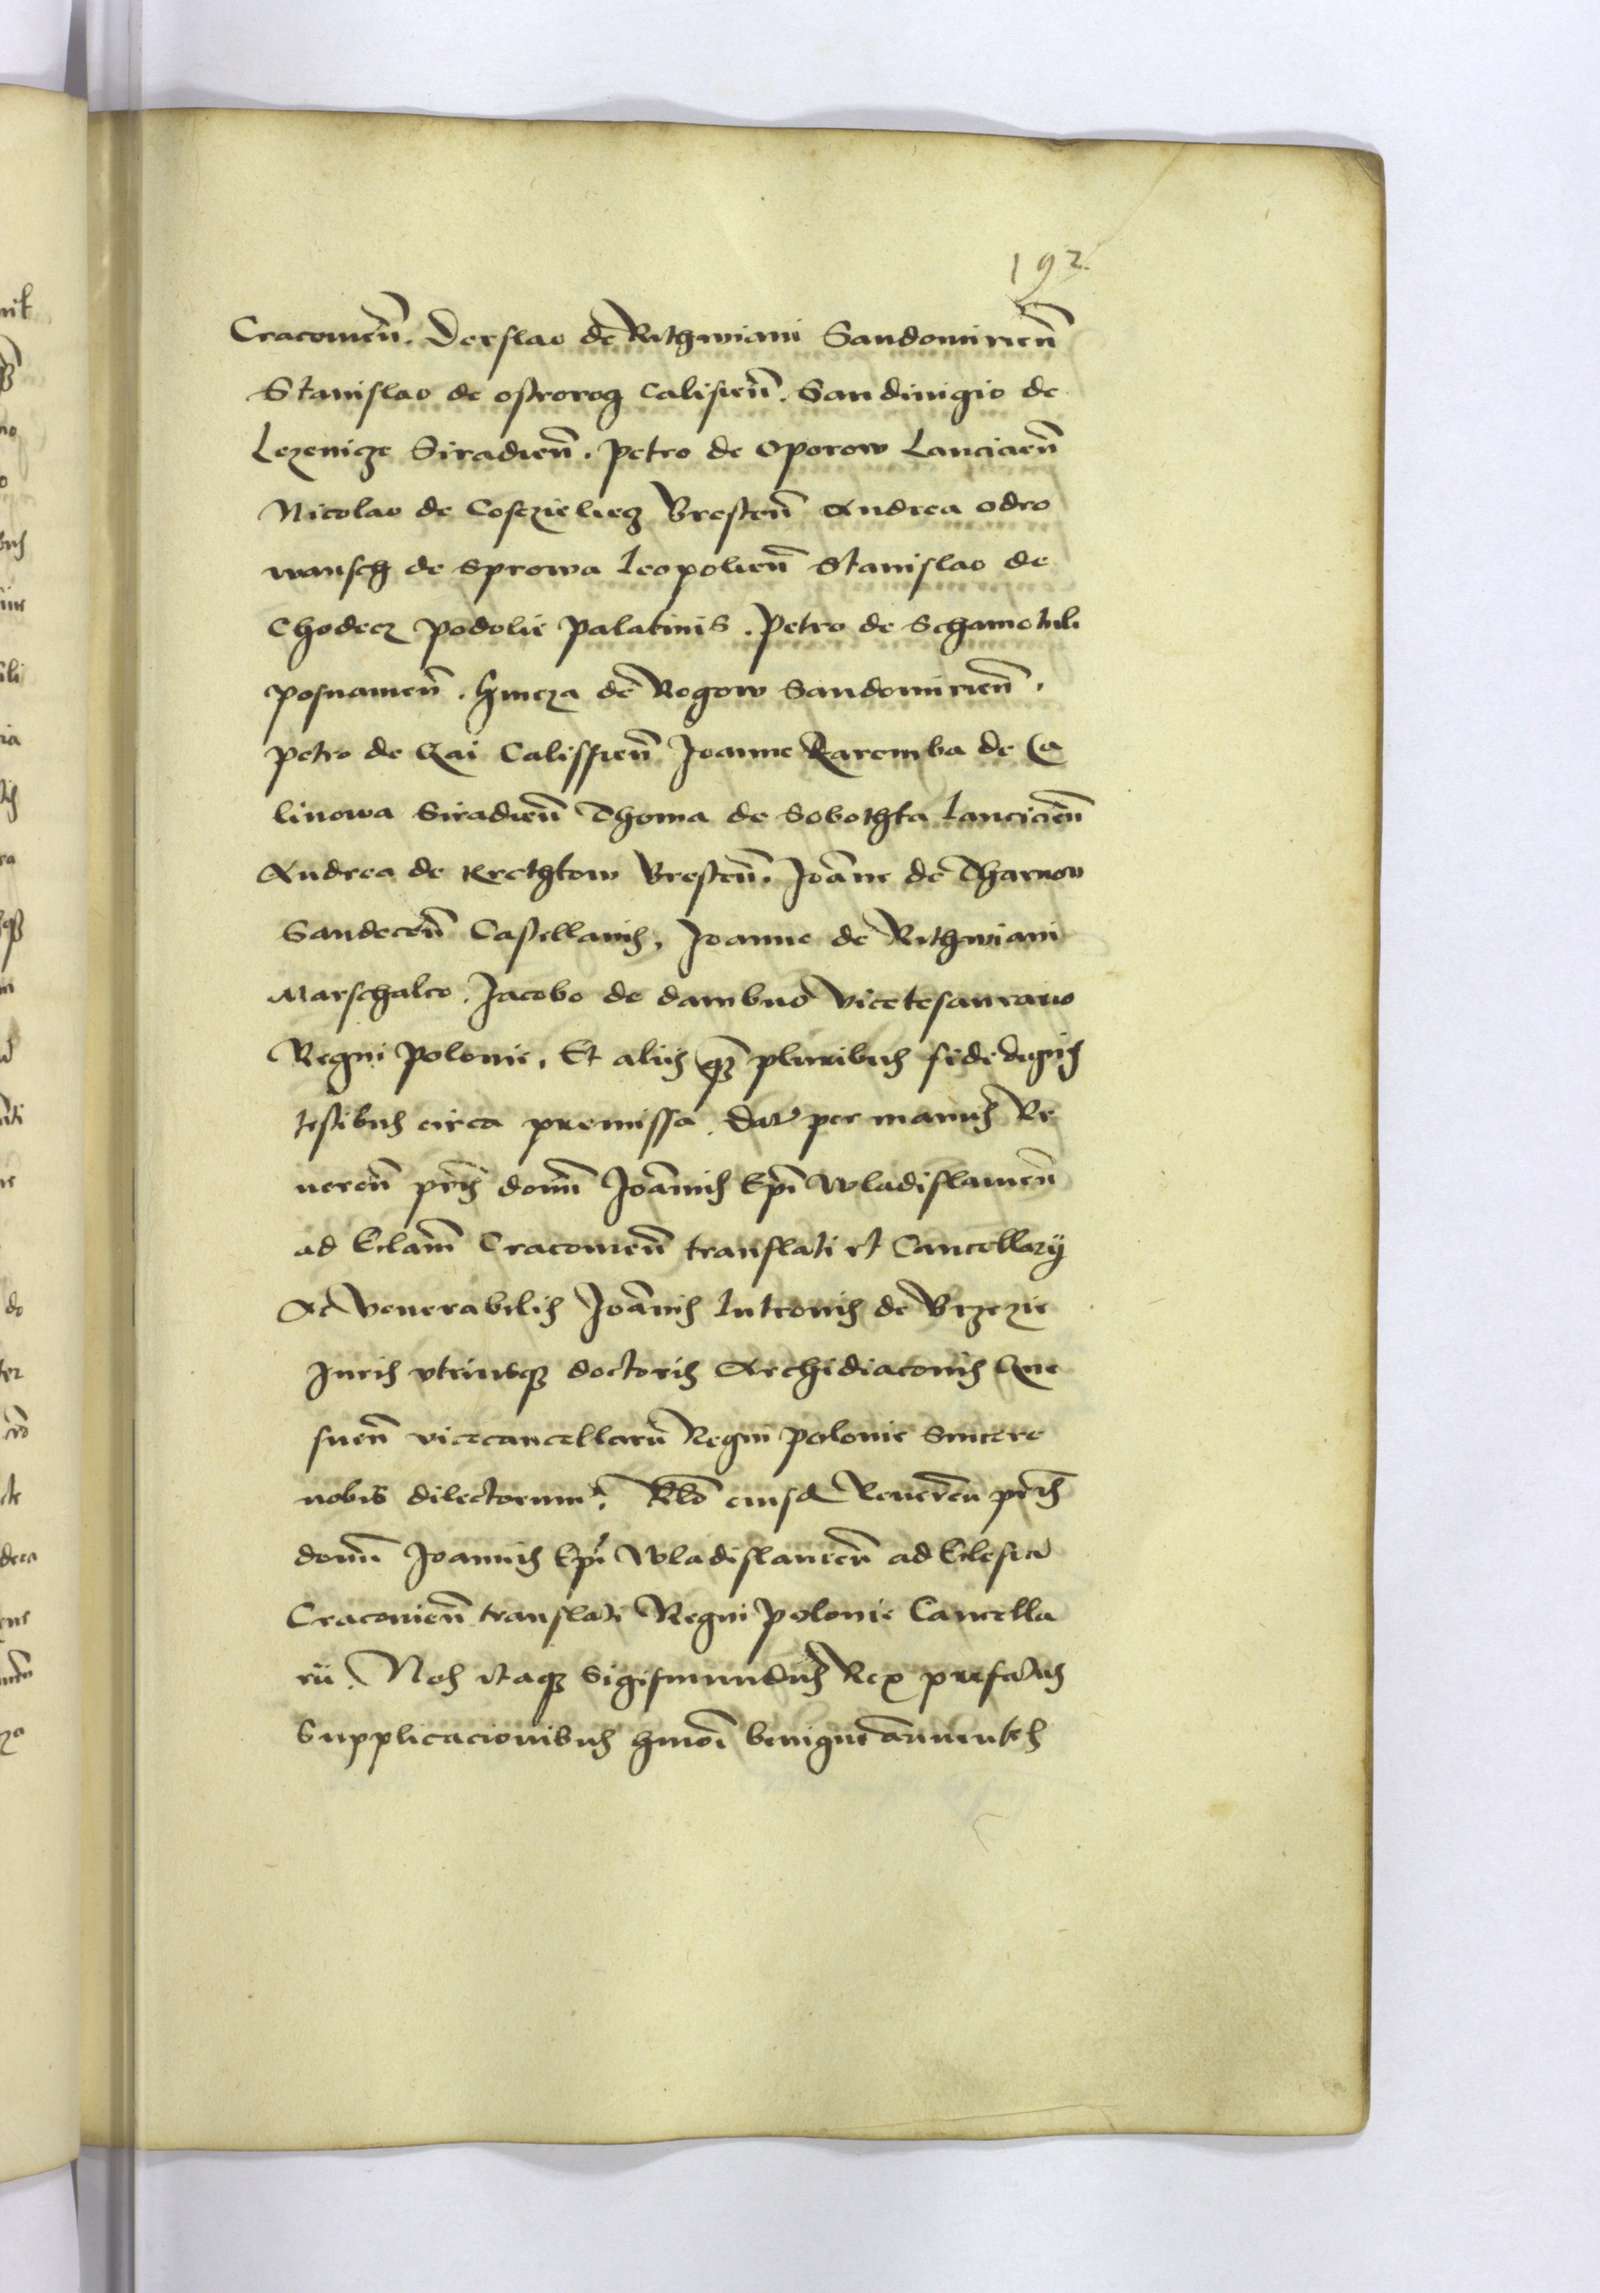 192
Cracouieñ. Derslao de Rithwiani Sandomirieñ
Stanislao de ostrorog Calisieñ. Sandiuigio de
Lezenicze Siradieñ. Petro de Oporow Lancicieñ
Nicolao de Cosczieliecz Bresteñ Andrea odro
wansch de Sprowa Leopolieñ Stanislao de
Chodecz Podolie Palatinis. Petro de Schamotuli
Posnanieñ. Hincza de Rogow Sandomirieñ.
Petro de Gai Calissieñ Joanne Zaremba de Ca
linowa Siradieñ Thoma de Sobothka Lancicieñ
Andrea de Krethkow Bresteñ. Joāne de Tharnow
Sandeceñ Castellanis, Joanne de Rithwiani
Marschalco. Jacobo de dambno vicetesaurario
Regni Polonie. Et aliis q̄ʒ pluribus fide dignis
testibus circa premissa. Dat̄ per manus Re
ueren̄ pr̄is domī Joānnis Ep̄i Wladislauieñ
ad Ecclam̄ Cracouieñ translati et Cancellarÿ
Ac Venerabilis Joānis Lutconis de Brzezie
Juris vtriusqʒ doctoris Archidiaconis Gne
sneñ vicecancellarii Regni Polonie Sincere
nobis dilectorum. Rlō eiusd Reueren̄ pr̄is
domī Joannis Ep̄i Wladislauieñ ad Eclesiā
Cracouieñ translati Regni Polonie Cancella
rii. Nos itaqʒ Sigismundus Rex prefatus
Supplicacionibus hmōi benigne annuentes